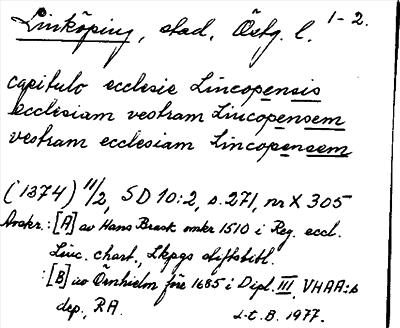 Linköping, stad, Östg. l. 1-2.
capitulo ecclesie Lincopensis
ecclesiam vestram Lincopensem
vestram ecclesiam Lincopensem
(1374) 11/2, SD 10:2, s. 271, nr X 305
Avskr.: [A] av Hans Brask omkr 1510 i Reg. eccl.
Linc. chart., Lkpgs stiftsbibl.
: [B] av Örnhielm före 1685 i Dipl. III, VHAA:s
dep., RA.
s.t.B. 1977.